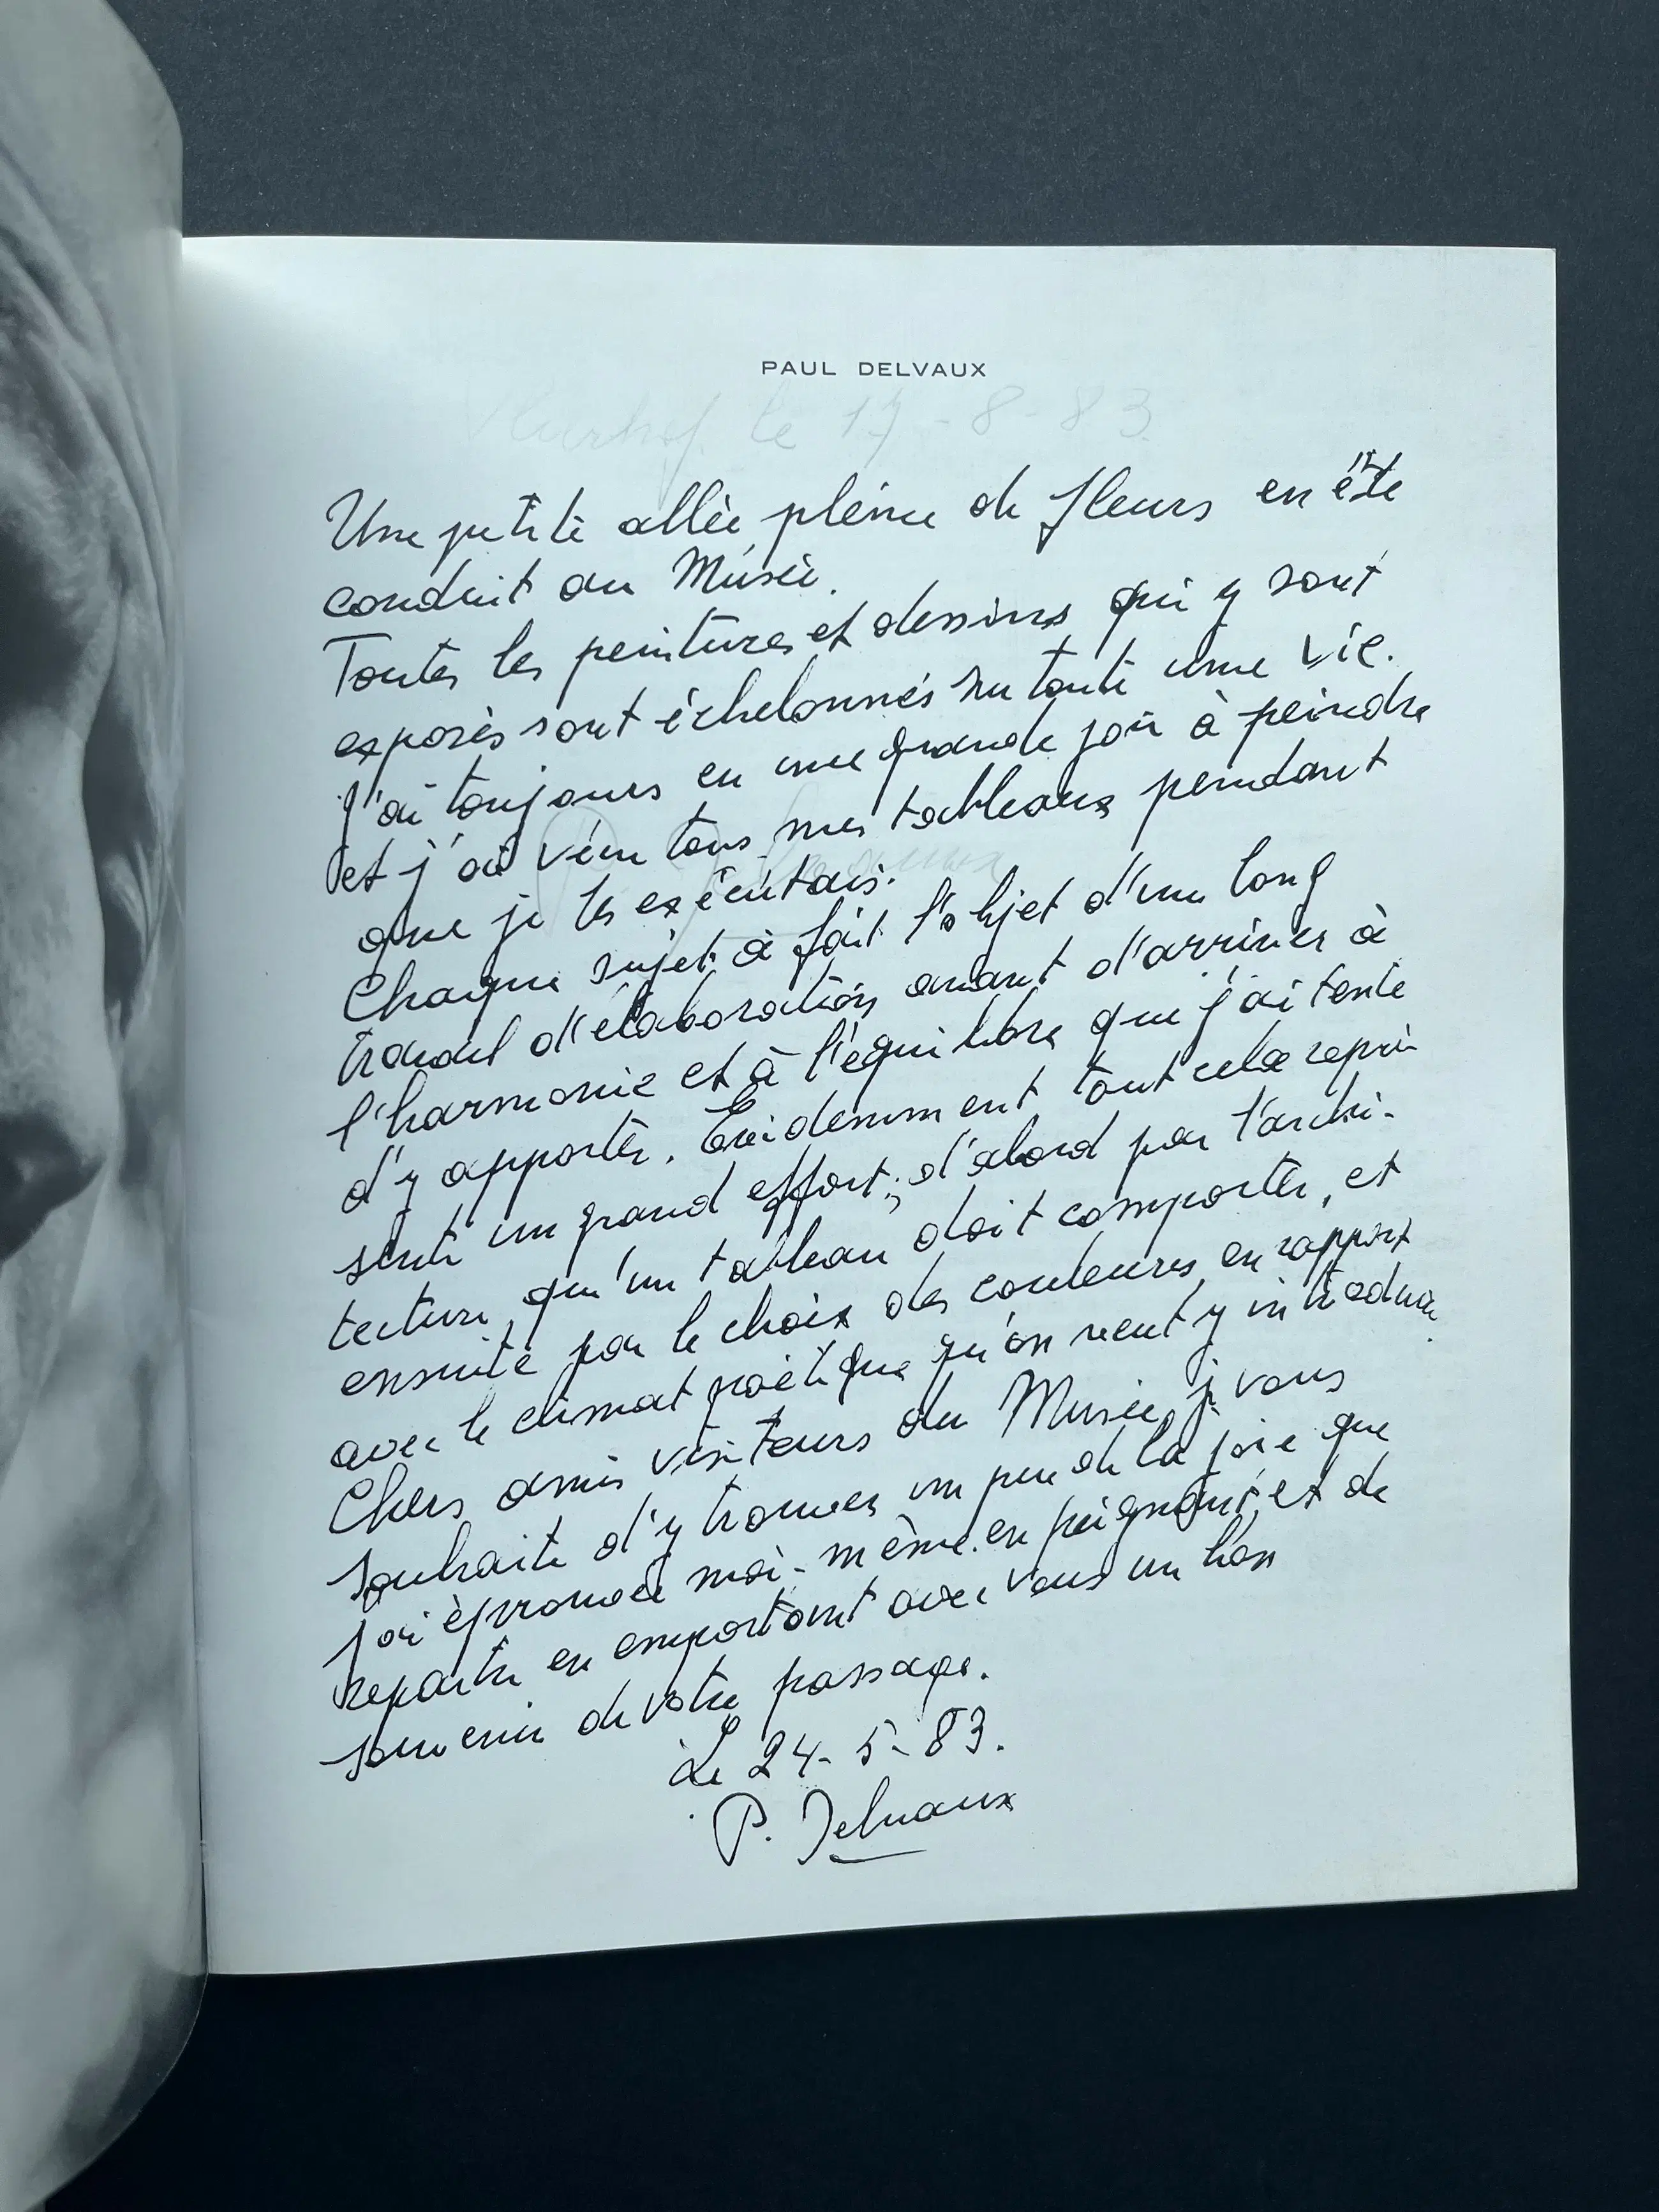 PAUL DELVAUX
le 17-8-83
Une petite allée pleine de fleurs en été
conduit au Musée.
Toutes les peintures et dessins qui y sont
exposés sont échelonnés sur toute une vie.
J'ai toujours eu une grande joie à peindre
et j'ai vécu tous mes tableaux pendant
que je les exécutais.
Chaque sujet a fait l'objet d'un long
travail d'élaboration avant d'arriver à
l'harmonie et à l'équilibre que j'ai tenté
d'y apporter. Evidemment tout cela repré-
sente un grand effort; d'abord par l'archi-
tecture qu'un tableau doit comporter, et
ensuite par le choix des couleurs en rapport
avec le climat poétique qu'on veut y introduire.
Chers amis visiteurs du Musée, je vous
souhaite d'y trouver un peu de la joie que
j'ai éprouvée moi-même en peignant et de
repartir en emportant avec vous un bon
souvenir de votre passage.
Le 24-5-83.
P. Delvaux